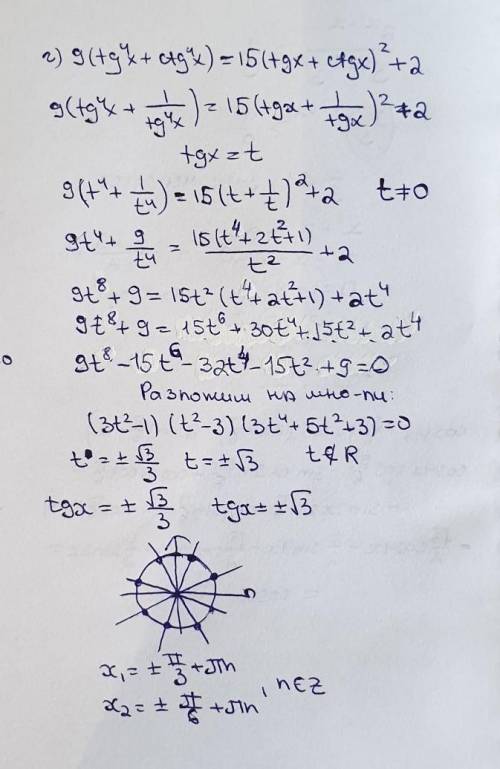 г) 9(tg⁴x + ctg⁴x) = 15(tgx + ctgx)² + 2
9(tg⁴x + 1/tg⁴x) = 15(tgx + 1/tgx)² + 2
tgx = t
9(t⁴ + 1/t⁴) = 15(t + 1/t)² + 2 t ≠ 0
9t⁴ + 9/t⁴ = 15(t⁴ + 2t² + 1)/t² + 2
9t⁸ + 9 = 15t² (t⁴ + 2t² + 1) + 2t⁴
9t⁸ + 9 = 15t⁶ + 30t⁴ + 15t² + 2t⁴
9t⁸ - 15t⁶ - 32t⁴ - 15t² + 9 = 0
Разложим на мно-ли:
(3t² - 1) (t² - 3) (3t⁴ + 5t² + 3) = 0
t = ± √3/3 t = ± √3 t ∉ R
tgx = ± √3/3 tgx ± ±√3
x₁ = ± π/3 + πn
x₂ = ± π/6 + πn , n ∈ Z